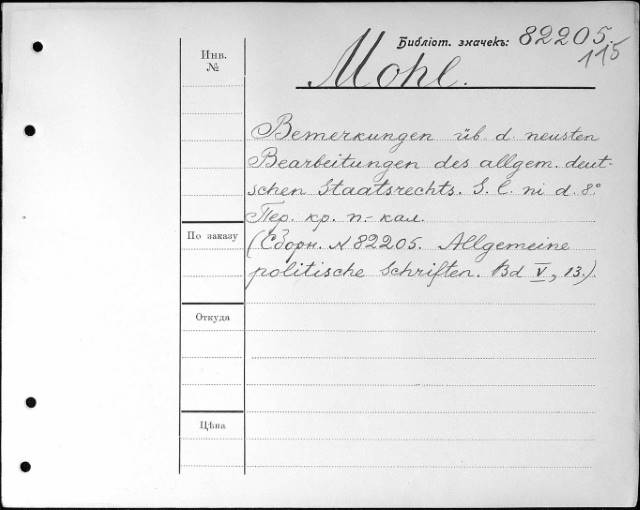 Библіот. значекъ: 82205.
115
Инв.
№
Mohl.
Bemerkungen üb. d. neusten
Bearbeitungen des allgem. deut-
schen Staatsrechts. S. l. ni d. 8°.
Пер. кр. п.-кал.
По заказу
(Сборн. № 82205. Allgemeine
politische Schriften. Bd V, 13.)
Откуда
Цѣна